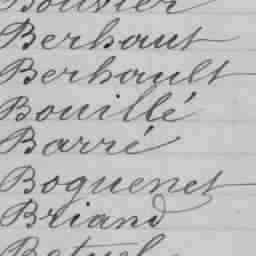 Bouvier
Berhaut
Berhault
Bouillé
Barré
Boguenet
Briand